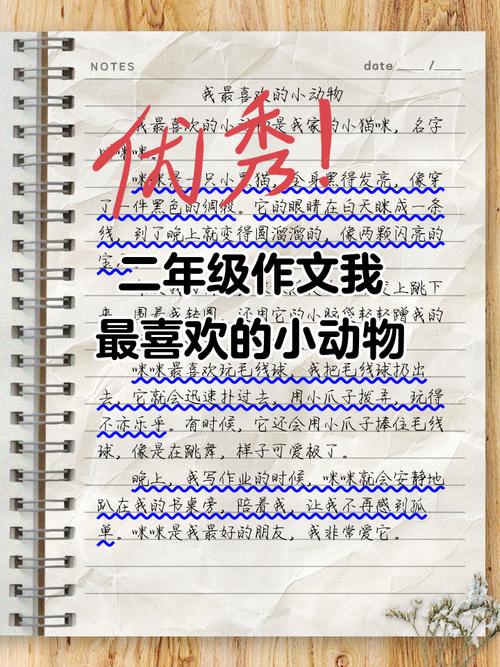 NOTES date ____ / ____
我最喜欢的小动物
优秀！
我最喜欢的小动物是我家的小猫咪，名字
咪咪
咪咪是一只小黑猫，全身黑得发亮，像穿
了一件黑色的绸缎。它的眼睛在白天眯成一条
线，到了晚上就变得圆溜溜的，像两颗闪亮的
宝
二年级作文我
上跳下
来，围着我转圈，还用它的小脑袋轻轻蹭我的
最喜欢的小动物
咪咪最喜欢玩毛线球，我把毛线球扔出
去，它就会迅速扑过去，用小爪子拨弄，玩得
不亦乐乎。有时候，它还会用小爪子捧住毛线
球，像是在跳舞，样子可爱极了。
晚上，我写作业的时候，咪咪就会安静地
趴在我的书桌旁，陪着我，让我不再感到孤
单。咪咪是我最好的朋友，我非常爱它。